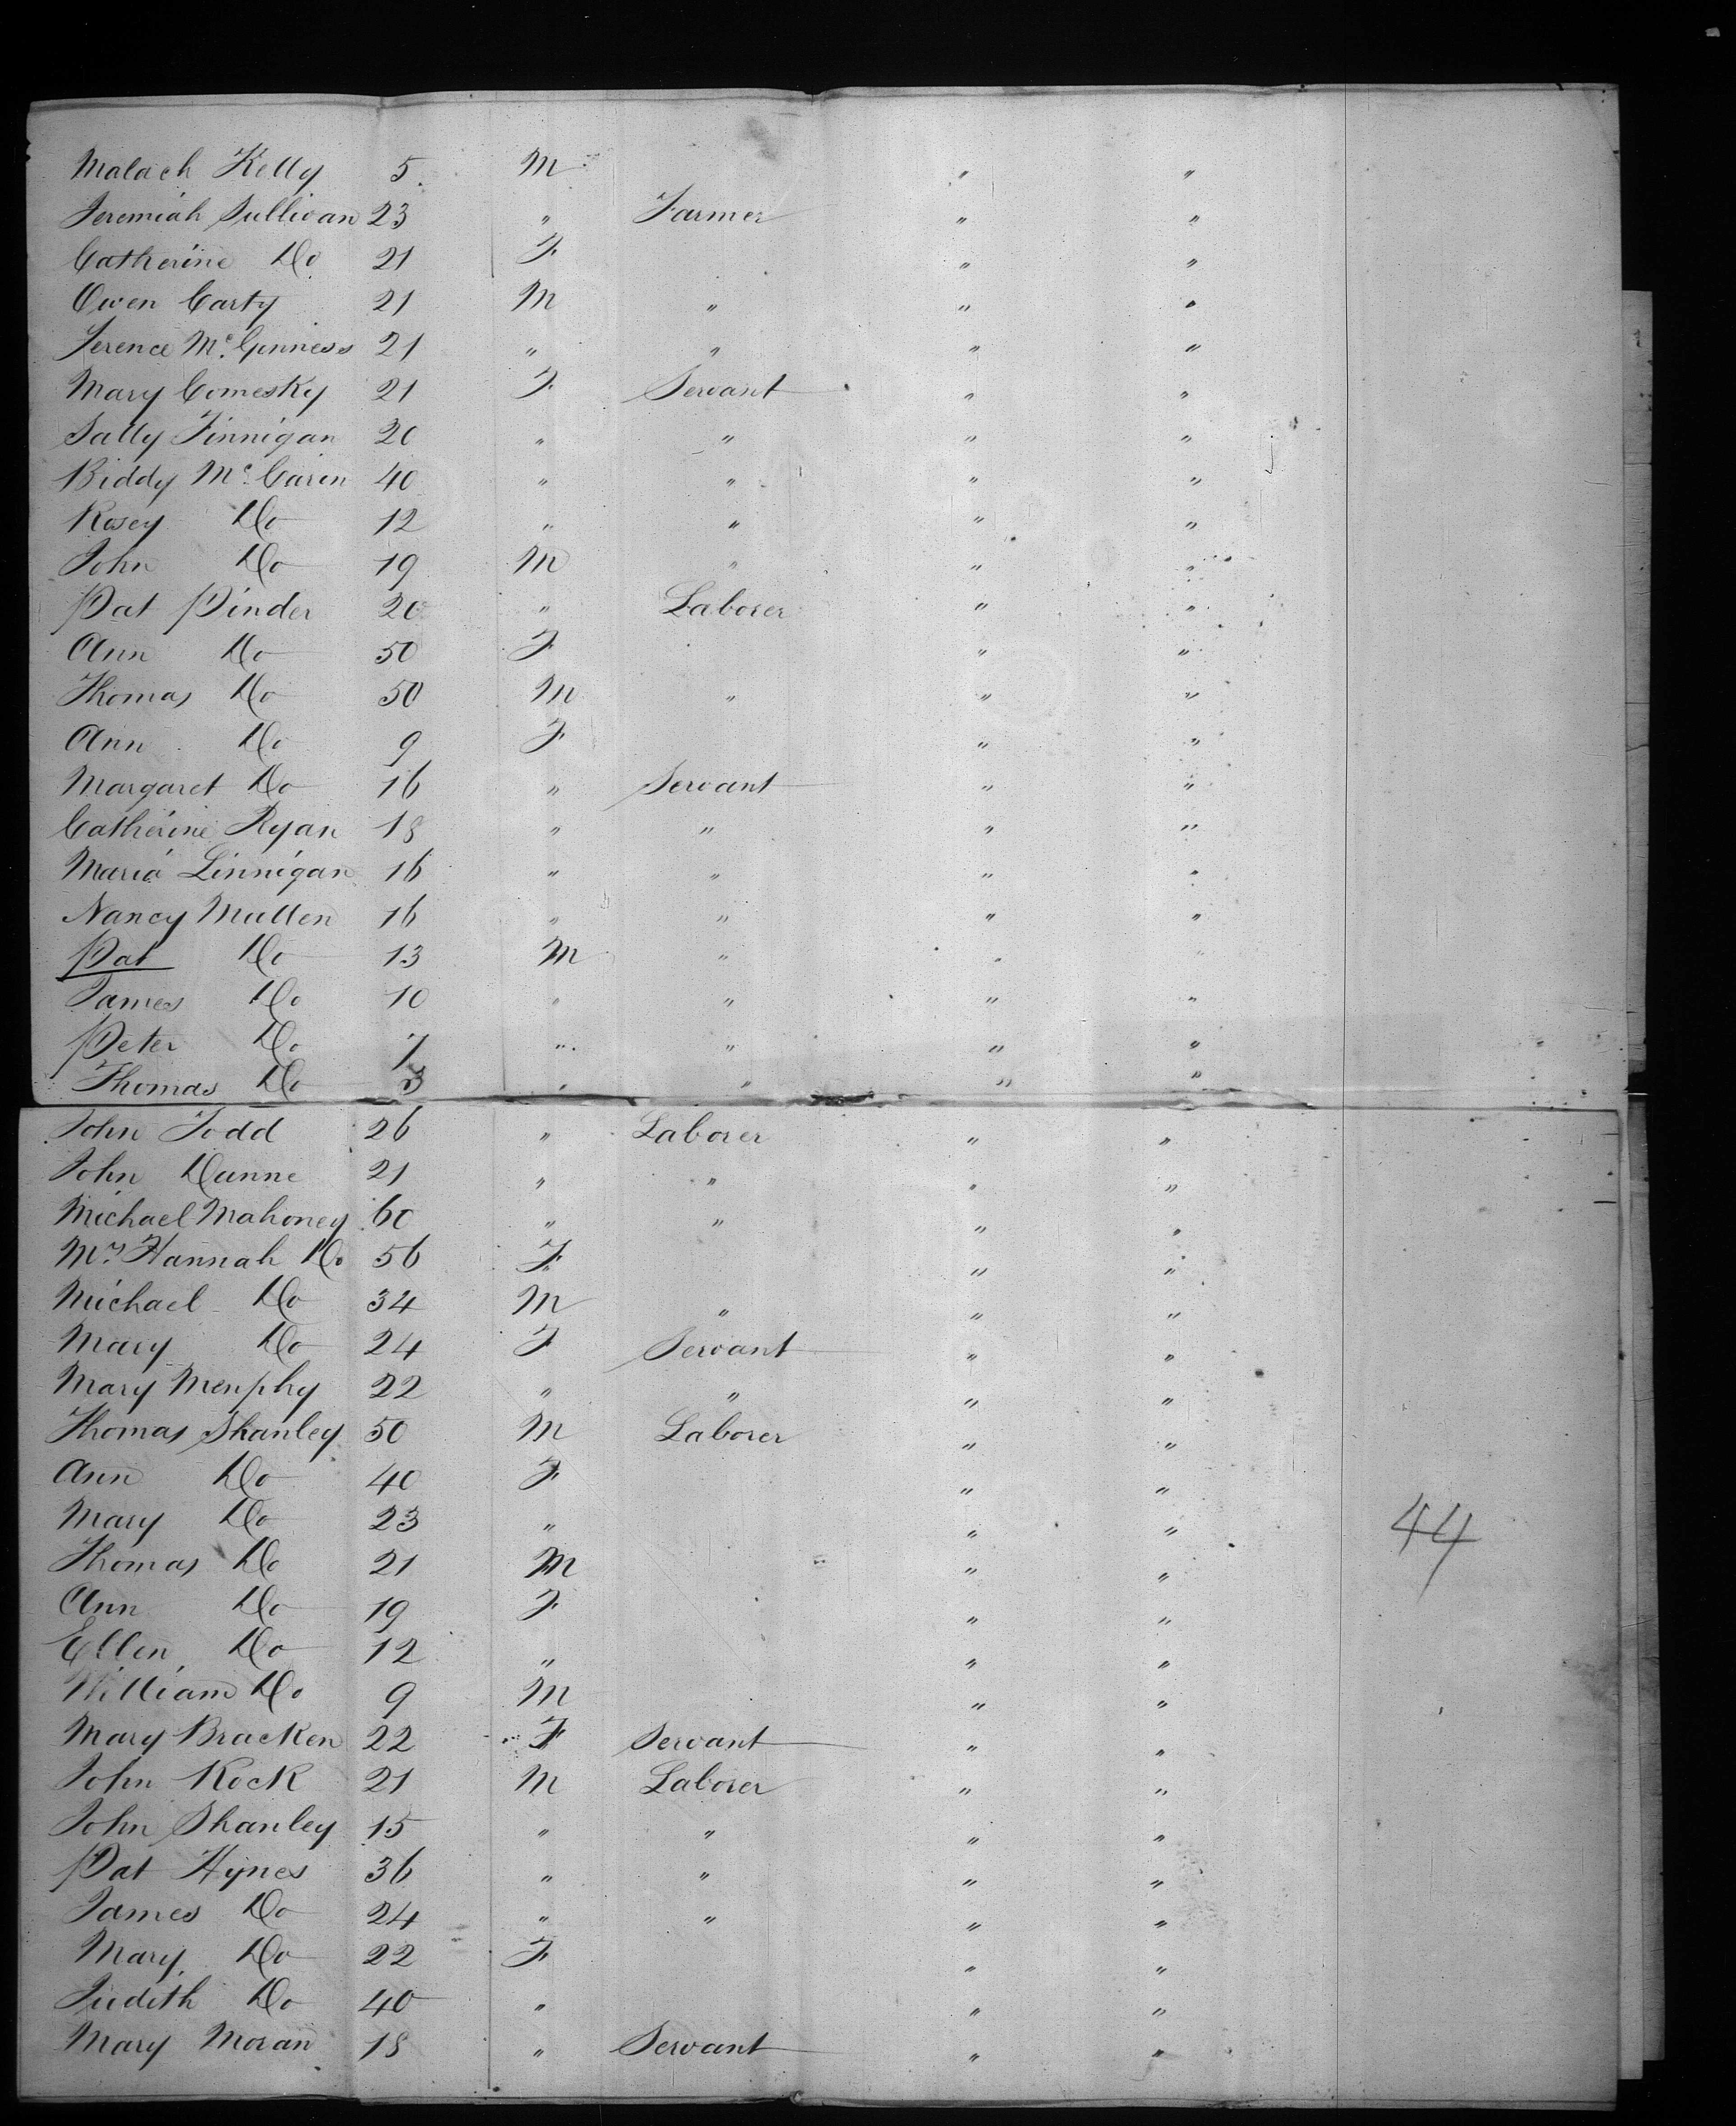 Malach Kelly 5 M " "
Jeremiah Sullivan 23 " Farmer " "
Catherine Do 21 F " "
Owen Carty 21 M " " "
Terence Mc Ginness 21 " " " "
Mary Comesky 21 F Servant " "
Sally Finnigan 20 " " " "
Biddy Mc Carin 40 " " " "
Rosey Do 12 " " " "
John Do 19 M " " "
Pat Pinder 20 " Laborer " "
Ann Do 50 F " "
Thomas Do 50 M " " "
Ann Do 9 F " "
Margaret Do 16 " Servant " "
Catherine Ryan 18 " " " "
Maria Linnigan 16 " " " "
Nancy Mullen 16 " " " "
Pat Do 13 M " " "
James Do 10 " " " "
Peter Do 7 " " " "
Thomas Do 3 " " " "
John Todd 26 " Laborer " "
John Dunne 21 " " " "
Michael Mahoney 60 " " " "
Mrs Hannah Do 56 F " "
Michael Do 34 M " " "
Mary Do 24 F Servant " "
Mary Menphy 22 " " " "
Thomas Shanley 50 M Laborer " "
Ann Do 40 F " "
Mary Do 23 " " "
Thomas Do 21 M " "
Ann Do 19 F " "
Ellen Do 12 " " "
William Do 9 M " "
Mary Bracken 22 F Servant " "
John Rock 21 M Laborer " "
John Shanley 15 " " " "
Pat Hynes 36 " " " "
James Do 24 " " " "
Mary Do 22 F " "
Judith Do 40 " " "
Mary Moran 18 " Servant " "
44